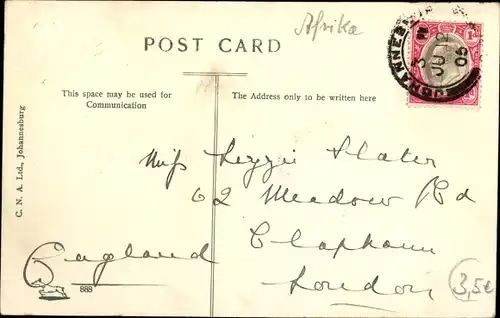 Afrika
POST CARD
JOHANNESB
3
JU 2
06
1d
This space may be used for
Communication
The Address only to be written here
C. N. A. Ltd., Johannesburg
Miss Lizzie Slater
62 Meadow Rd
Clapham
London
England
888
3,5€